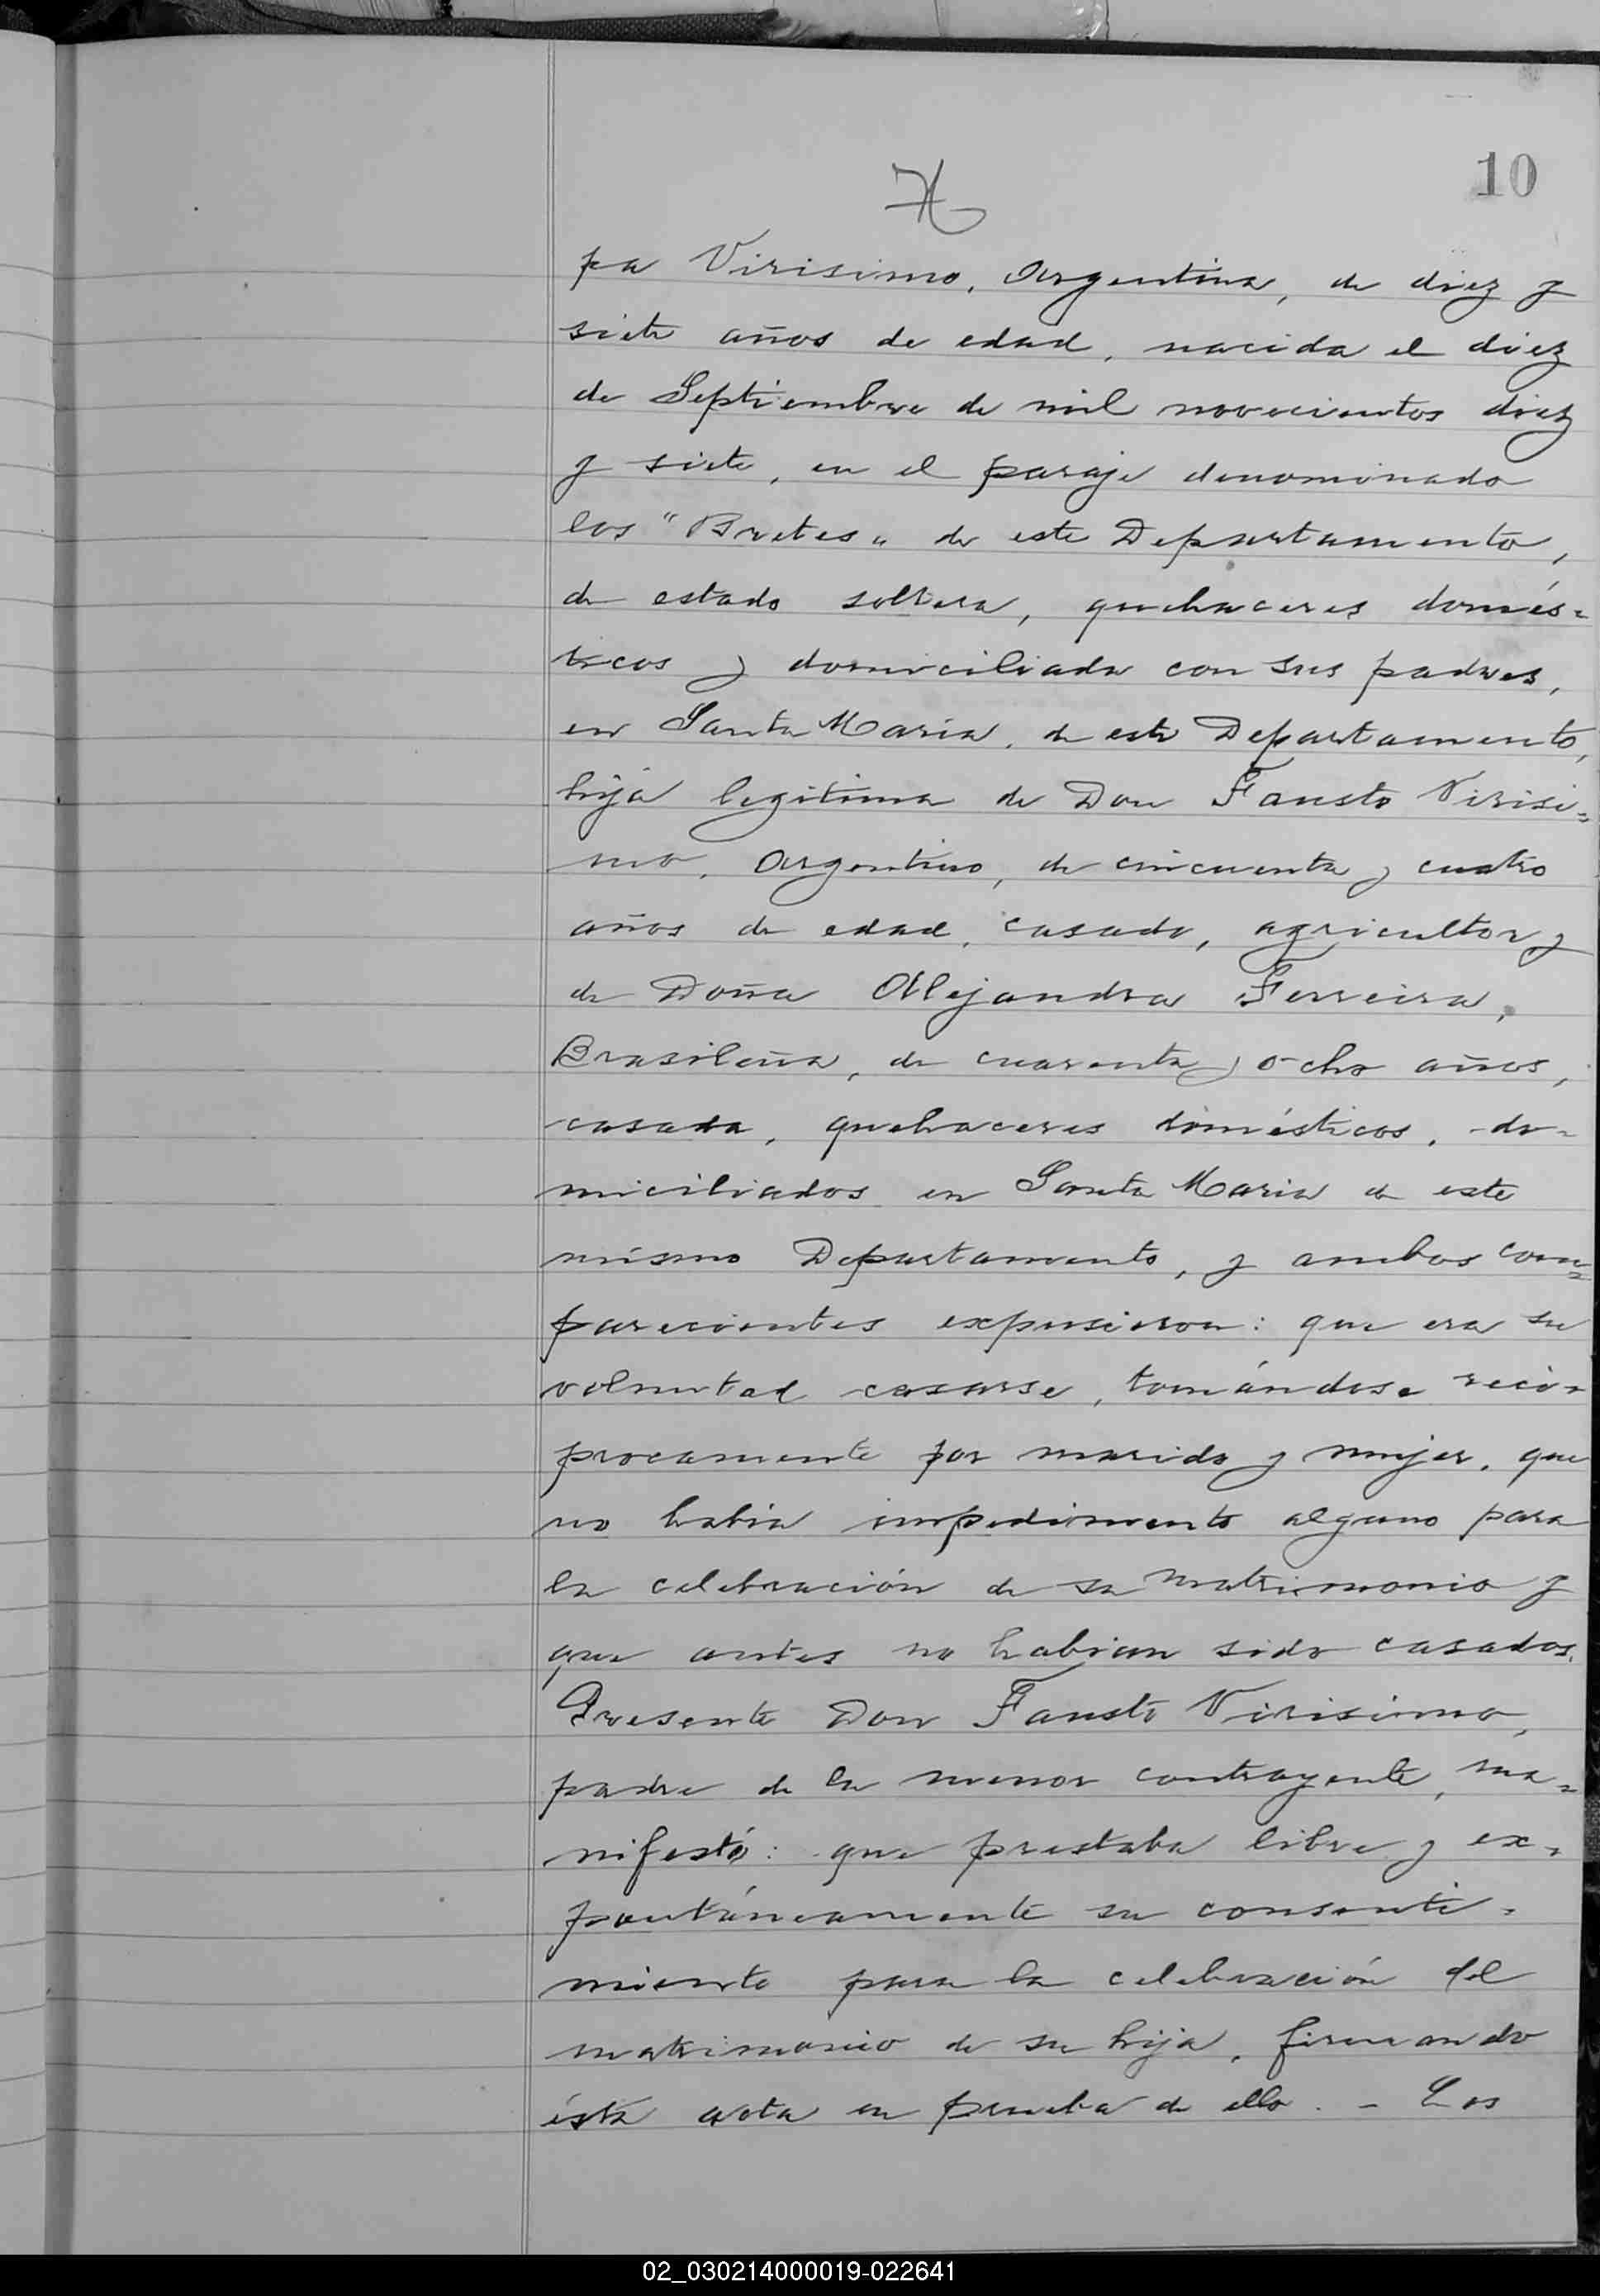 10
pa Virisimo, Argentina, de diez y
siete años de edad, nacida el diez
de Septiembre de mil novecientos diez
y siete, en el paraje denominado
los "Bretes" de este Departamento,
de estado soltera, quehaceres domés=
ticos y domiciliada con sus padres,
en Santa María, de este Departamento,
hija legitima de Don Fausto Virisi=
mo, Argentino, de cincuenta y cuatro
años de edad, casado, agricultor y
de Doña Alejandra Ferreira,
Brasileña, de cuarenta y ocho años,
casada, quehaceres domésticos, do-
miciliados en Santa Maria de este
mismo Departamento, y ambos com=
parecientes expusieron: que era su
voluntad casarse, tomándose recí-
procamente por marido y mujer, que
no habia impedimento alguno para
la celebración de su matrimonio y
que antes no habian sido casados.
Presente Don Fausto Virisimo,
padre de la menor contrayente, ma=
nifestó: que prestaba libre y ex-
pontáneamente su consenti-
miento para la celebración del
matrimonio de su hija, firmando
ésta acta en prueba de ello. - Los
02_030214000019-022641